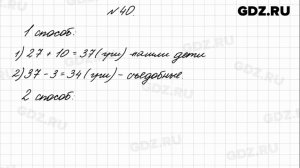 GDZ.RU
№ 40.
1 способ.
1) 27 + 10 = 37 (гри) - нашли дети
2) 37 - 3 = 34 (гри) - съедобные
2 способ.